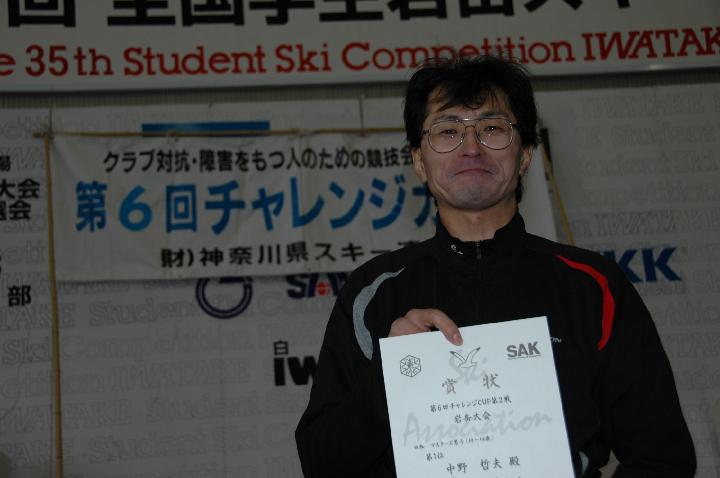 回 全国学生岩岳スキー
e 35th Student Ski Competition IWATAKE
クラブ対抗・障害をもつ人のための競技会
第6回チャレンジカ
財)神奈川県スキー連
場
大会
部
SAJ
KK
白
IW
SAK
Ski
賞状
第6回チャレンジCUP第2戦
岩岳大会
Association
第1位
中野 哲夫 殿